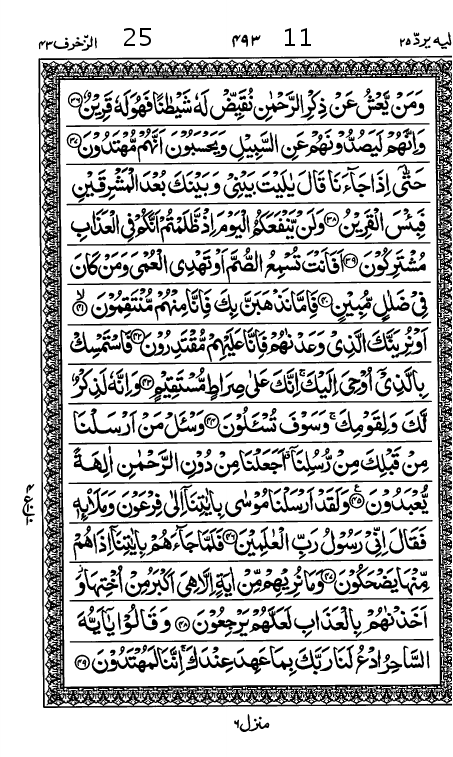 الزخرف ٤٣ 25 ٤٩٣ 11 لیه یردّ ٢٥
وَمَنْ يَّعْشُ عَنْ ذِكْرِ الرَّحْمٰنِ نُقَيِّضْ لَهٗ شَيْطٰنًا فَهُوَ لَهٗ قَرِيْنٌ ۝٣٦
وَاِنَّهُمْ لَيَصُدُّوْنَهُمْ عَنِ السَّبِيْلِ وَيَحْسَبُوْنَ اَنَّهُمْ مُّهْتَدُوْنَ ۝٣٧
حَتّٰۤى اِذَا جَآءَنَا قَالَ يٰلَيْتَ بَيْنِيْ وَبَيْنَكَ بُعْدَ الْمَشْرِقَيْنِ
فَبِئْسَ الْقَرِيْنُ ۝٣٨ وَلَنْ يَّنْفَعَكُمُ الْيَوْمَ اِذْ ظَّلَمْتُمْ اَنَّكُمْ فِي الْعَذَابِ
مُشْتَرِكُوْنَ ۝٣٩ اَفَاَنْتَ تُسْمِعُ الصُّمَّ اَوْ تَهْدِي الْعُمْيَ وَمَنْ كَانَ
فِيْ ضَلٰلٍ مُّبِيْنٍ ۝٤٠ فَاِمَّا نَذْهَبَنَّ بِكَ فَاِنَّا مِنْهُمْ مُّنْتَقِمُوْنَ ۝٤١ۙ
اَوْ نُرِيَنَّكَ الَّذِيْ وَعَدْنٰهُمْ فَاِنَّا عَلَيْهِمْ مُّقْتَدِرُوْنَ ۝٤٢ فَاسْتَمْسِكْ
بِالَّذِيْۤ اُوْحِيَ اِلَيْكَ ۚ اِنَّكَ عَلٰى صِرَاطٍ مُّسْتَقِيْمٍ ۝٤٣ وَاِنَّهٗ لَذِكْرٌ
لَّكَ وَلِقَوْمِكَ ۚ وَسَوْفَ تُسْـَٔلُوْنَ ۝٤٤ وَسْـَٔلْ مَنْ اَرْسَلْنَا
مِنْ قَبْلِكَ مِنْ رُّسُلِنَاۤ اَجَعَلْنَا مِنْ دُوْنِ الرَّحْمٰنِ اٰلِهَةً
يُّعْبَدُوْنَ ۝٤٥ وَلَقَدْ اَرْسَلْنَا مُوْسٰى بِاٰيٰتِنَاۤ اِلٰى فِرْعَوْنَ وَمَلَا۟ئِهٖ
فَقَالَ اِنِّيْ رَسُوْلُ رَبِّ الْعٰلَمِيْنَ ۝٤٦ فَلَمَّا جَآءَهُمْ بِاٰيٰتِنَاۤ اِذَا هُمْ
مِّنْهَا يَضْحَكُوْنَ ۝٤٧ وَمَا نُرِيْهِمْ مِّنْ اٰيَةٍ اِلَّا هِيَ اَكْبَرُ مِنْ اُخْتِهَا ؗ وَ
اَخَذْنٰهُمْ بِالْعَذَابِ لَعَلَّهُمْ يَرْجِعُوْنَ ۝٤٨ وَقَالُوْا يٰۤاَيُّهَ
السَّاحِرُ ادْعُ لَنَا رَبَّكَ بِمَا عَهِدَ عِنْدَكَ ۚ اِنَّنَا لَمُهْتَدُوْنَ ۝٤٩
منزل ٦